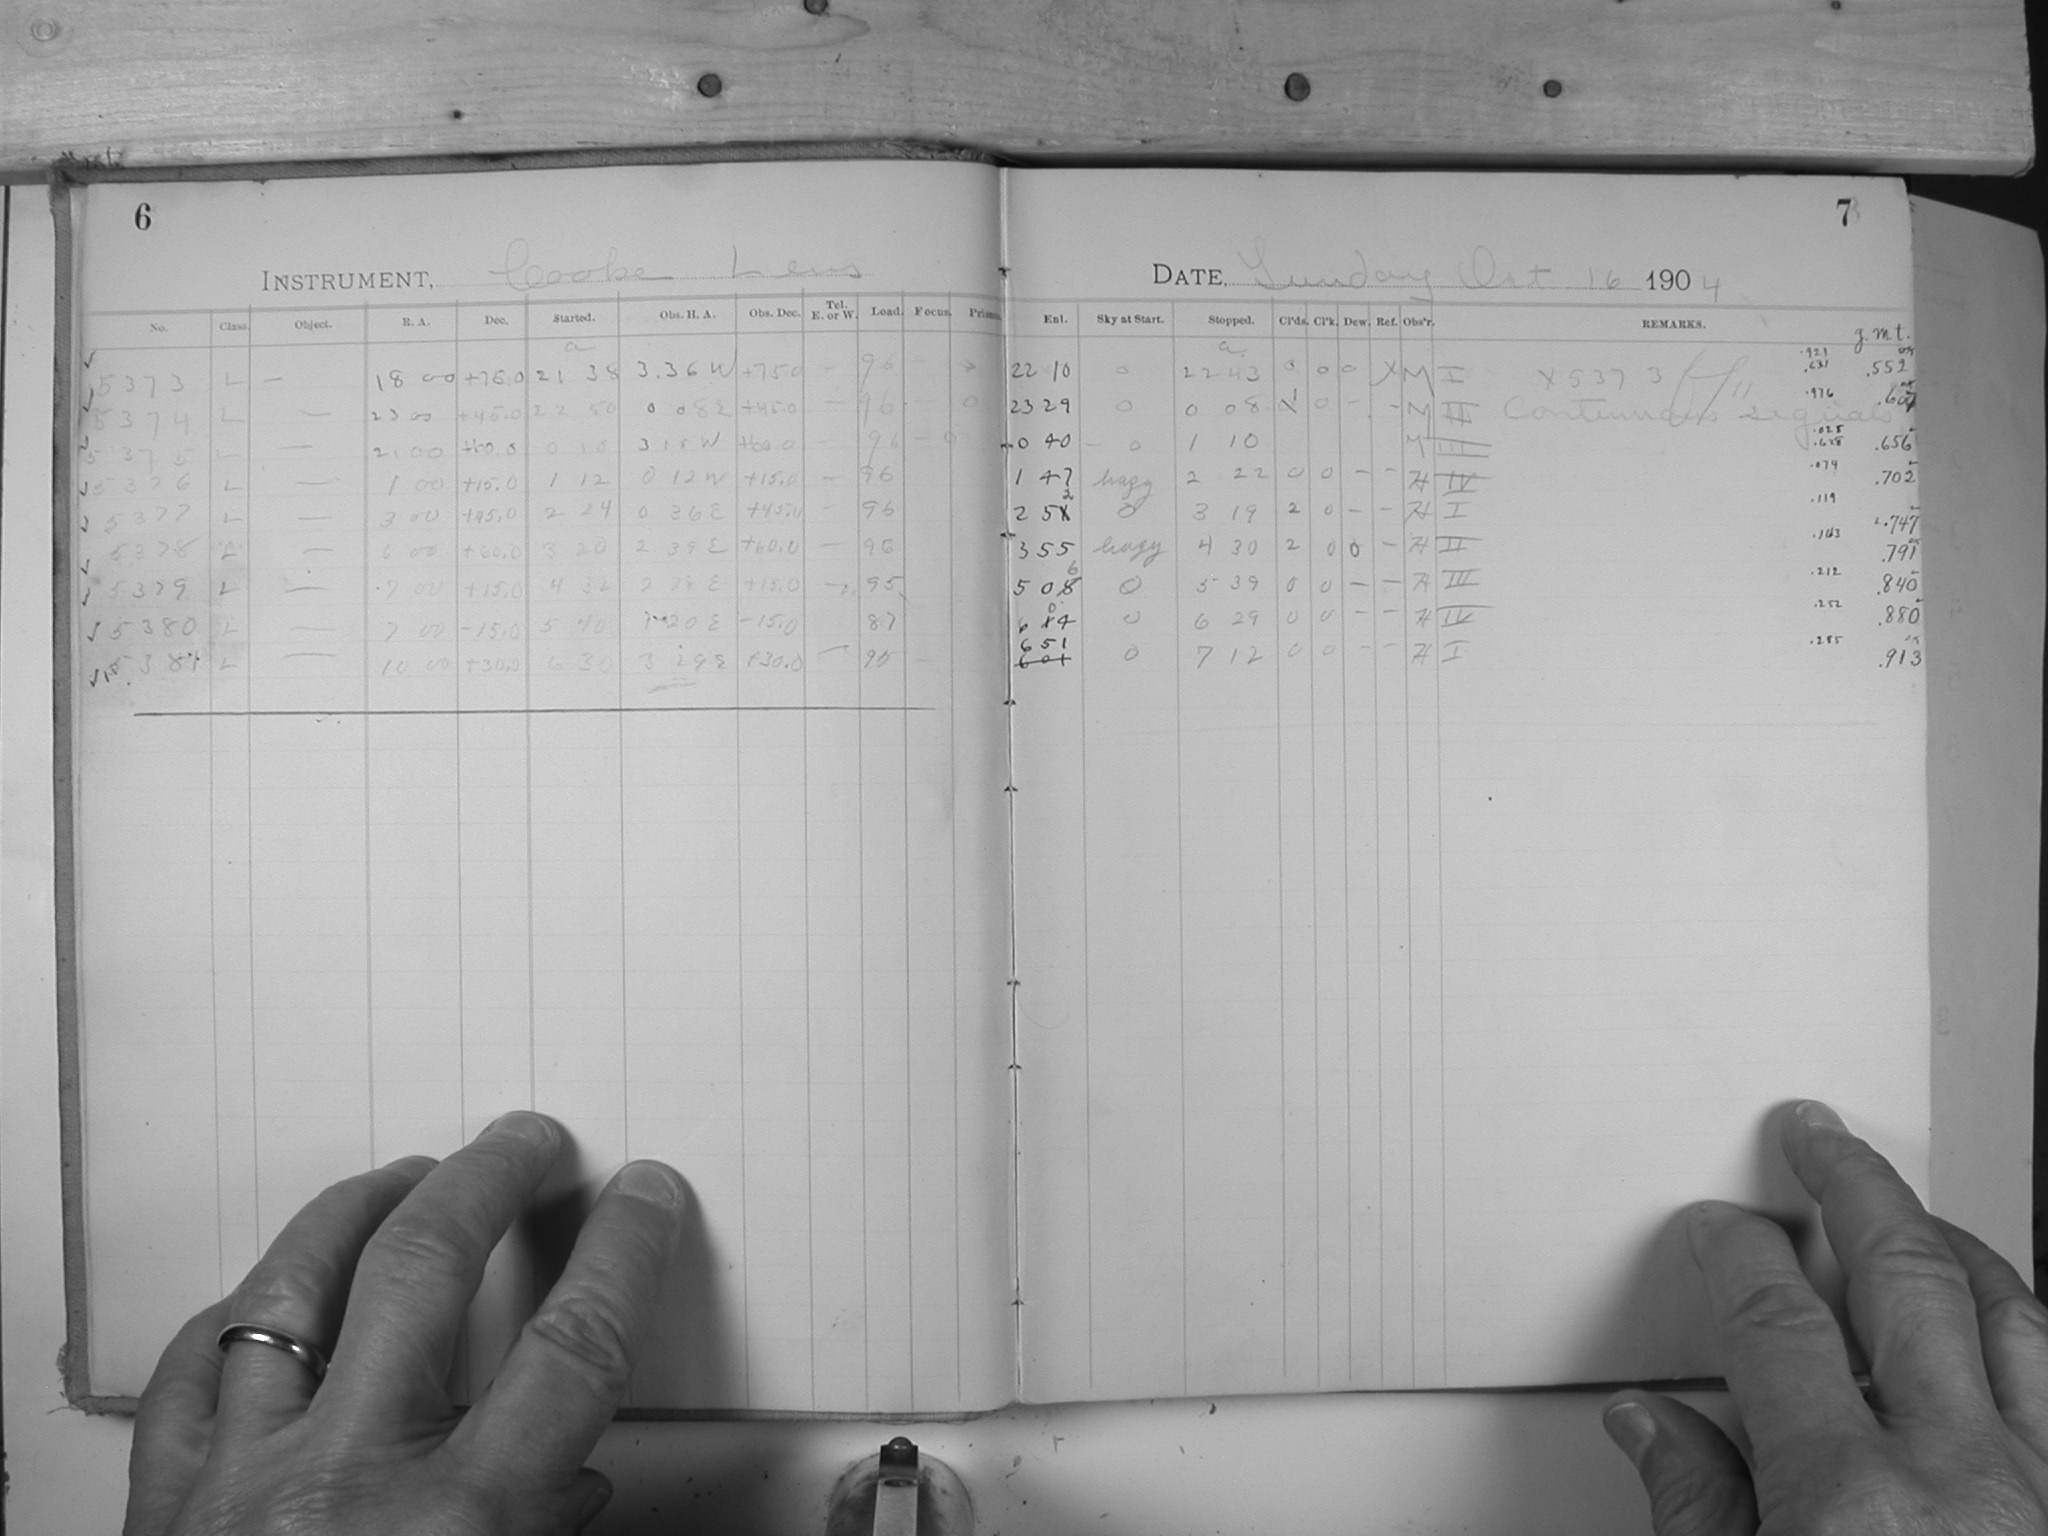 6
INSTRUMENT, Cooke Lens
No. Class. Object. R. A. Dec. Started. Obs. H. A. Obs. Dec. Tel. E. or W. Load. Focus. Prisms.
a
5373 L — 18 00 +75.0 21 38 3.36 W +75.0 - 96 -
5374 L — 23 00 +45.0 22 50 0 08 E +45.0 — 96 - 0
5375 L — 21 00 +60.0 0 10 3 15 W +60.0 - 96 - 0
5376 L — 1 00 +15.0 1 12 0 12 W +15.0 - 96
5377 L — 3 00 +45.0 2 24 0 36 E +45.0 - 96
5378 L — 6 00 +60.0 3 20 2 39 E +60.0 — 96
5379 L — 7 00 +15.0 4 32 2 28 E +15.0 — 95
5380 L — 7 00 -15.0 5 40 1 20 E -15.0 87
5381 L — 10 00 +30.0 6 30 3 29 E +30.0 — 95 -
7
DATE, Sunday Oct 16 1904
Enl. Sky at Start. Stopped. Cl'ds. Cl'k. Dew. Ref. Obs'r. REMARKS. g.m.t.
a
22 10 0 22 43 0 0 0 X M I X 5373 .921 .552
23 29 0 0 08 1 0 - - M II Continuous signals .976 .607
0 40 - 0 1 10 M III .025 .656
1 47 hazy 2 22 0 0 - - H IV .079 .702
2 52 0 3 19 2 0 - - H I .119 .747
3 55 hazy 4 30 2 0 0 - H II .163 .791
5 06 0 5 39 0 0 - - H III .212 .840
6 04 0 6 29 0 0 - - H IV .252 .880
6 51
6 01 0 7 12 0 0 - - H I .285 .913